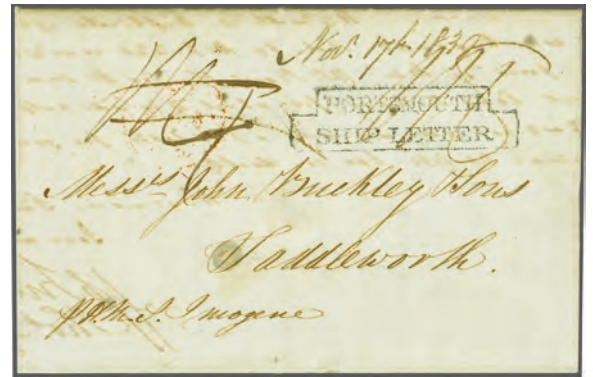 Nov. 17th 1839
PORTSMOUTH
SHIP LETTER
Messrs John Buckley & Sons
Saddleworth.
p H.M.S. Imogene